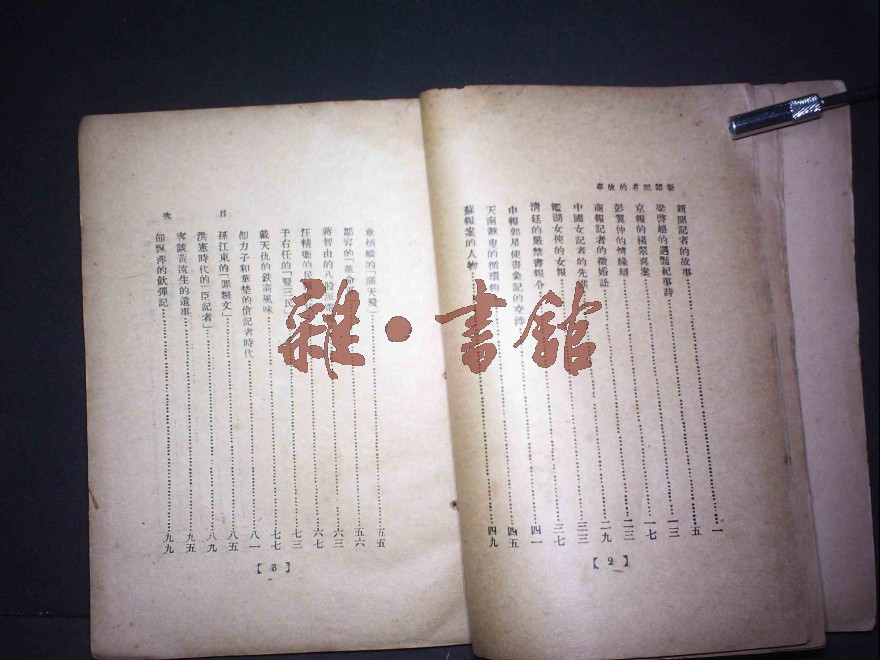 新聞記者的故事
新聞記者的故事……一
梁啓超的遇艷紀事詩……五
京報的楊翠喜案……一三
彭翼仲的情緣……一七
商報記者的徵婚訟……二三
中國女記者的先進……二九
鑑湖女俠的女報……三三
清廷的嚴禁書報令……三七
申報郭星使畫象記的交涉……四一
天南遯叟的循環……四五
蘇報案的人物……四九
【2】
目次
章炳麟的「滿天飛」……五五
鄒容的「革命……五六
蔣智由的八股……六三
汪精衛的民……六七
于右任的「豎三民……七三
戴天仇的鉄窗風味……七七
邵力子和葉楚傖記者時代……八一
孫江東的「罪辮文」……八五
洪憲時代的「臣記者」……八九
客談黃流生的遺事……九五
邵飄萍的飲彈記……九九
【3】
雜·書館